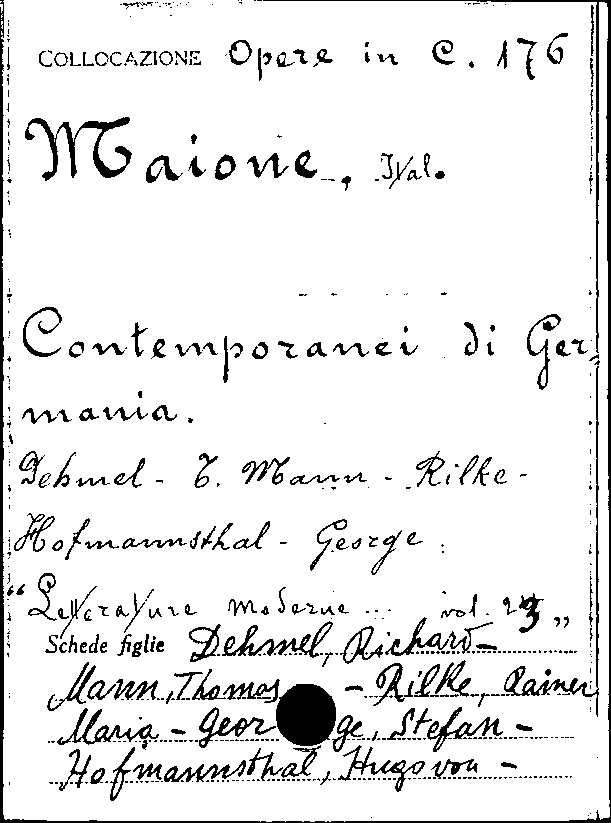 COLLOCAZIONE Opere in C. 176
Maione, Ital.
Contemporanei di Ger-
mania.
Dehmel - T. Mann - Rilke -
Hofmannsthal - George.
"Letterature moderne ... vol. 3"
Schede figlie Dehmel, Richard -
Mann, Thomas - Rilke, Rainer
Maria - George, Stefan -
Hofmannsthal, Hugo von -